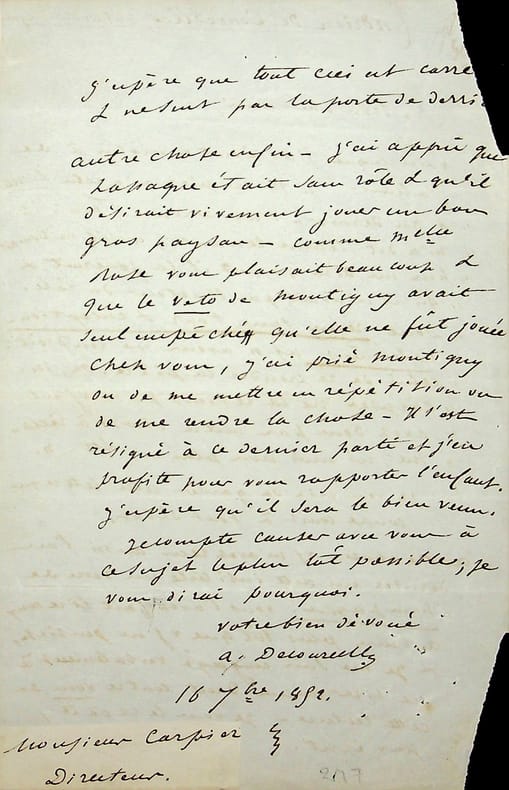 J'espère que tout ceci est carré
& ne sent pas la porte de derriè
autre chose enfin - j'ai appris que
Lassagne était sans rôle & qu'il
désirait vivement jouer un bon
gros paysan - comme Melle
Rose vous plaisait beaucoup &
que le veto de Montigny avait
seul empêché qu'elle ne fût jouée
chez vous, j'ai prié Montigny
ou de me mettre en répétition ou
de me rendre la chose - Il s'est
résigné à ce dernier parti et j'en
profite pour vous rapporter l'enfant.
J'espère qu'il sera le bien venu.
Je compte causer avec vous à
ce sujet le plus tôt possible; je
vous dirai pourquoi.
votre bien dévoué
a. Decourcelle
16 7bre 1852.
Monsieur Carpier
Directeur.
217